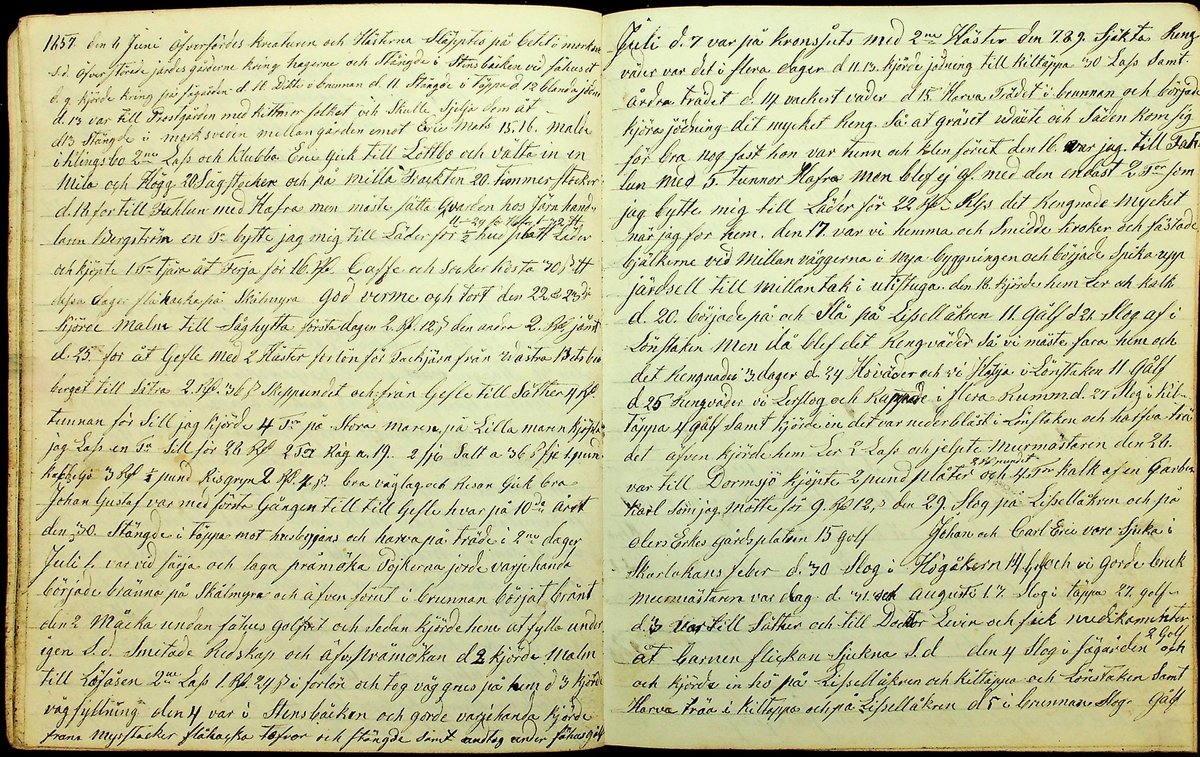 1857 den 6 Juni Öfverfördes Kreaturen och Hästarna Släpptes på betet i marken
s.d. öfver förde jordes gårderne kring hagerne och Stängde i Stensbäcken vid fähuset
d. 9 kjörde kring på fägården d 11 Ditto i brunnan d. 11 Stängde i Täppa d 12 blanda jörn
d. 13 var till Prestgården med folket och Skulle Selja dem åt
dt3 Stängde i markskevein mellangården emot Eric Mats 15. 16. malm
i klingsbo 2ne Lass och Klubba Eric Gick till Löttbo och valta in en
Mila och Högg 20 Sågstocken och på milla Trackten 20 timmer stocker
d. 18 for till Fahlun med Hafra men måste sätta Qvarden hos jern hand-
laren Bergström en Tr bytte jag mig till Läder för ½ hud platt Läder
och kjöpte 1 Tr tjära åt Forja för 16 Rd Caffe och Socker hösta 30 β ℔
dessa dager flåhacka på Skålmyra god verme och tort den 22 & 23 dj
kjörde malm till Såghytta första dagen 2 Rd. 12 β den andra 2. Rd jämt
d. 25 for åt Gefle med 2 Häster förlön för Tackjärn från västra
berget till Sätra 2 Rd. 36 β Skeppundet och från Gefle till Säther 4 Rd
tunnan för Sill jag kjörde 4 Tr på Stora maren på Lilla mann kjöpte
jag Lass en Tr Sill för 26 Rd 2 Tr Råg a 19. 2/16 Salt a 36 β 1 pund
Kabbeljo 3 Rd ½ pund Risgryn 2 Rd 4 β. bra väglag och Resan Gick bra
Johan Gustaf var med första Gången till till Gefle hvar på 10de året
den 30. Stängde i Täppa mot husbyggans och harva på träde i 2ne dager
Juli 1. var vid färja och laga pråmåka Pojkerna jorde varjehanda
började bränna på Skålmyra och äfven förut i brunnan börjat bränt
den 2 Måcka undan fähus golfvet och Sedan kjörde hem at fylla under
igen S.d. Smetade Redskap och Äfv pråmåkan d 2 kjörde Malm
till Löfåsen 2ne Lass 1 Rd. 24 β i förlön och tog väg grus på hem d 3 kjörde
vägfyllning den 4 var i Stensbäcken och gorde varjehanda kjörde
fram myrstacker flåhacka Tofvor och stängde samt undtog under fähus golf
Juli d. 7 var på kronskjuts med 2ne Häster den 7.8.9. Sjökta Reng-
väder var det i flera dager d 11. 13. kjörde jödning till Killtäppa 30 Lass Samt
årdra trädet d. 14 vackert väder d 15 Harva Trädet i brunnan och började
kjöra jödning dit mycket Reng. Så at gräset växte och Säden kom sig
för bra nog fast hon var tunn och klen förut den 16. var jag till Fah-
lun med 5. tunnor Hafra men blef ej af. med den endast 2 Tr som
jag bytte mig till Läder för 22 Rd Rgs det Rengnade mycket
när jag for hem. den 17. var vi hemma och Smidde kroker och fästade
bjälkerne vid Mellan väggerna i nya byggningen och började Spika upp
järdsell till mellantak i utistuga. den 18. kjörde hem Ler och kalk
d. 20. började på och Slå på Lissellåkren 11. Gålf d 21 Slog af i
Lönstaken Men då blef det Rengväder Så vi måste fara hem och
det Rengnade i 3 dager d. 24 Höväder och vi Hässja i Lönstaken 11 Gålf
d 25 Rengväder vi Lerslog och Rappade i flera Rumm d. 27 Slog i Kil-
täppa 4 Gålf Samt kjörde in det var nederblåst i Lönstaken och harfva trä-
det äfven kjörde hem Ler 2 Lass och jelpte Murmästaren den 28.
var till Dormsjö kjöpte 2 pund plåter och 4 Tnr kalk af en Garbio
karl som jag mötte för 9. Rd 12 β den 29. Slog på Lissellåkren och på
Olers Erkes gardsplatsen 15 golf Johan och Carl Eric vare Sjuka i
Skarlakans feber d. 30 Slog i Högåkern 14 G och vi gorde bruk
Murmästaren var dag. d 31. och Auguste 1 ? Slog i täppa 27. golf-
d 3 var till Säther och till Docktor Levin och fick medikamenter
åt barnen flickan Sjukna S.d den 4 Slog i fägården 2 Golf och
och kjörde in hö på Lissellåkren och killtäppa och Lönstaken Samt
Harva träa i Killtäppa och på Lissellåkren d 5 i brunnan Slog Gålf